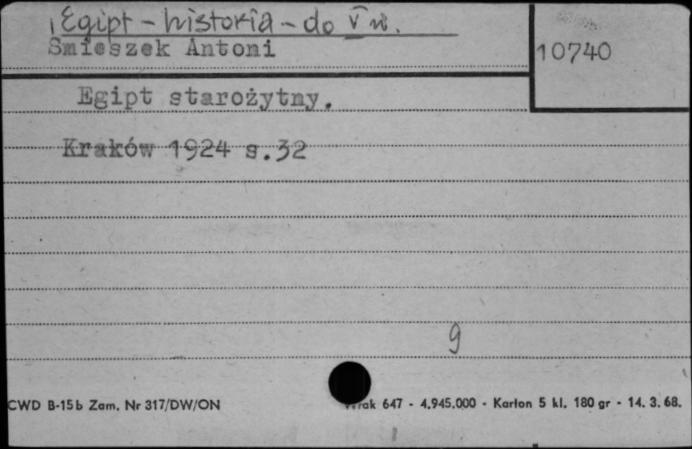 Egipt - historia - do V w.
Smieszek Antoni
10740
Egipt starożytny.
Kraków 1924 s.32
9
CWD B-15b Zam. Nr 317/DW/ON
647 - 4.945.000 - Karton 5 kl. 180 gr - 14. 3. 68.